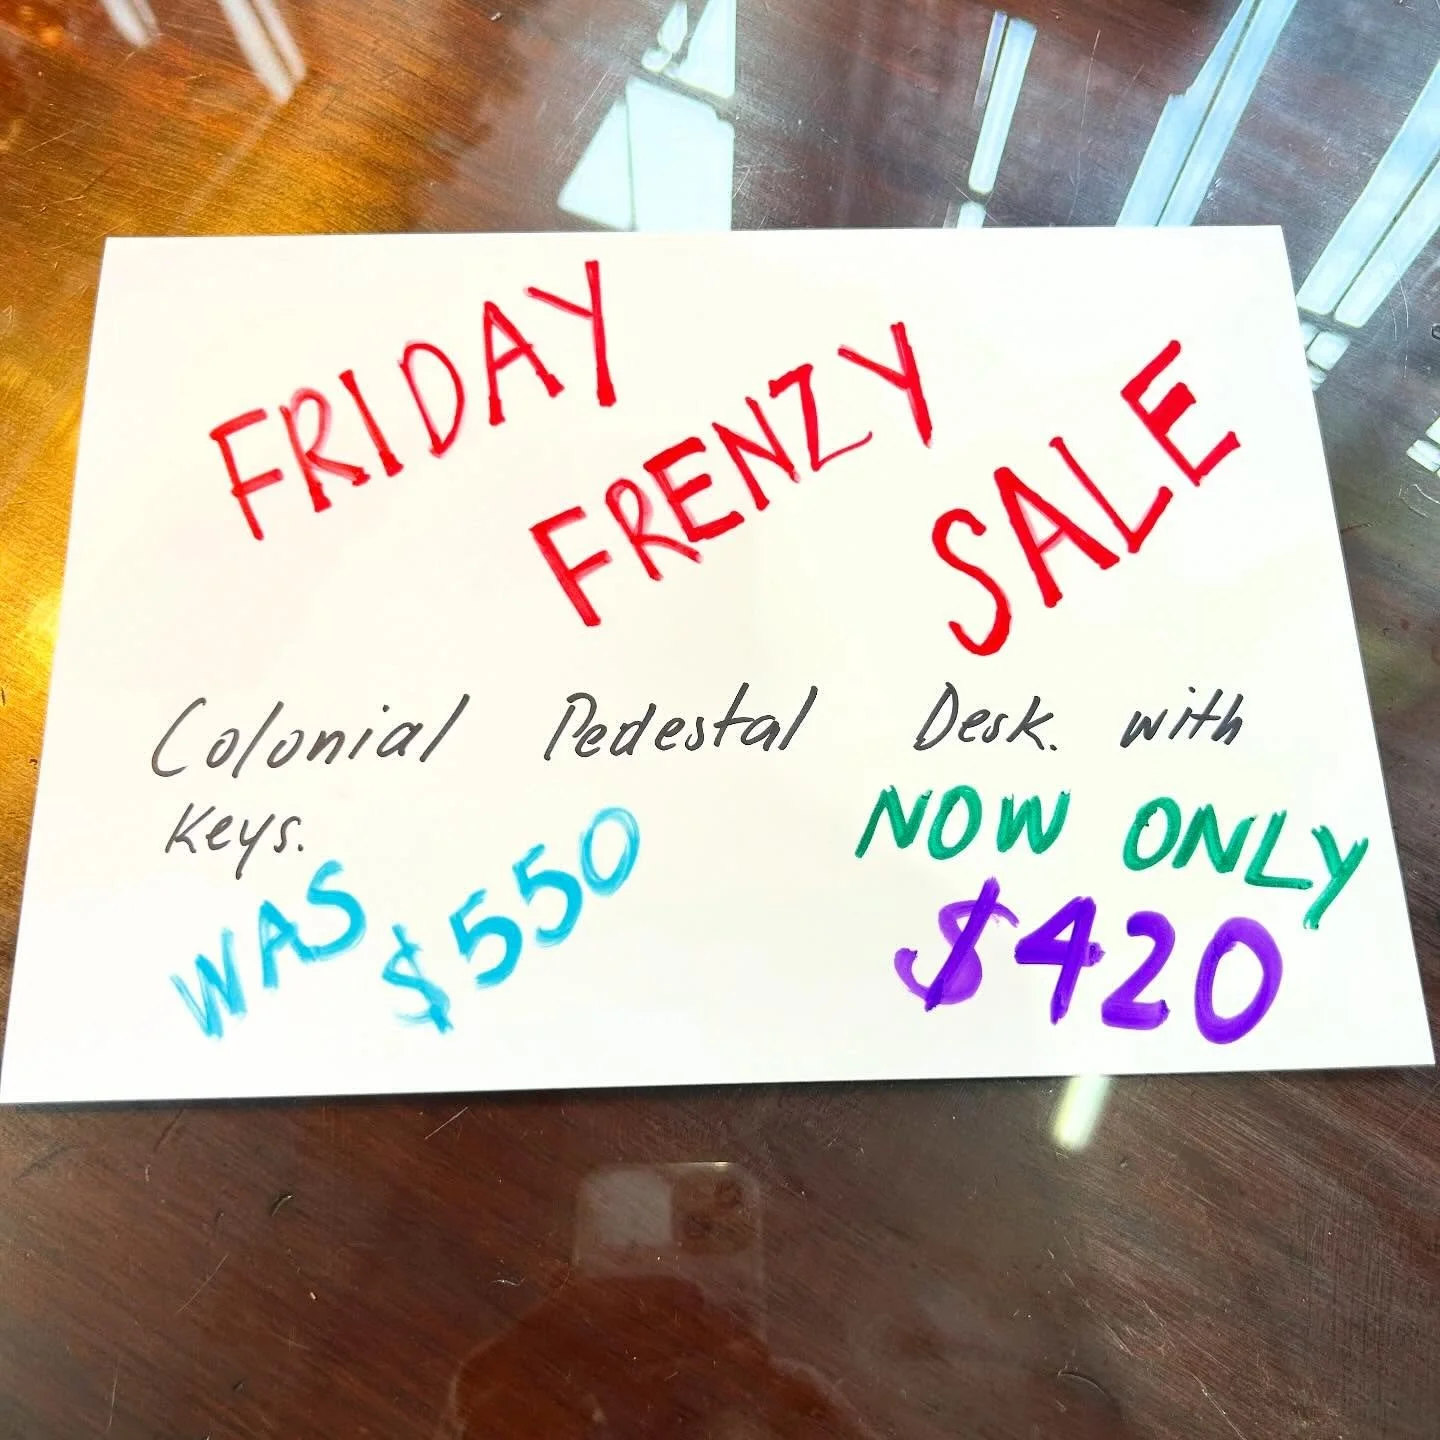 FRIDAY FRENZY SALE
Colonial Pedestal Desk. with
Keys.
WAS $550
NOW ONLY
$420